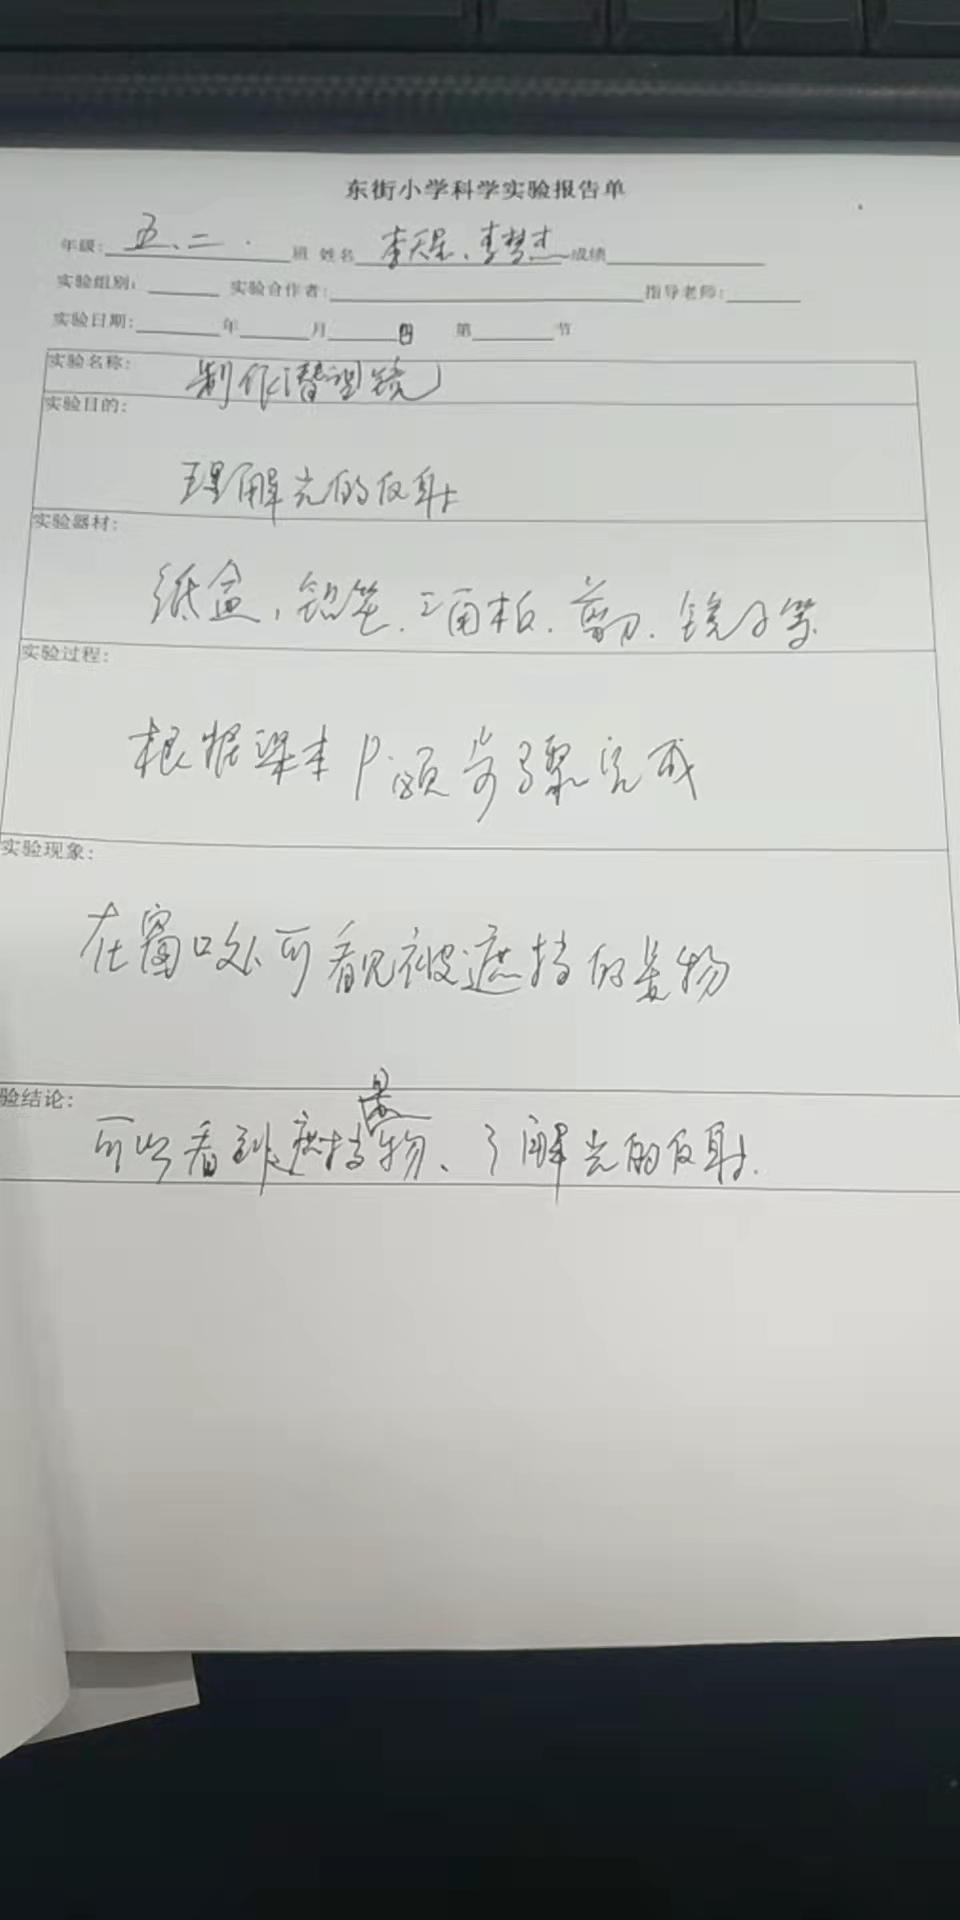 东街小学科学实验报告单
年级: 五、二. 班 姓名 李天保、李梦杰 成绩
实验组别: 实验合作者: 指导老师:
实验日期: 年 月 日 第 节
实验名称: 制作潜望镜
实验目的:
理解光的反射
实验器材:
纸盒、铅笔、三角板、剪刀、镜子等
实验过程:
根据课本 步骤完成
实验现象:
在窗口处可看见被遮挡的景物
验结论: 可以看到遮挡景物、了解光的反射.